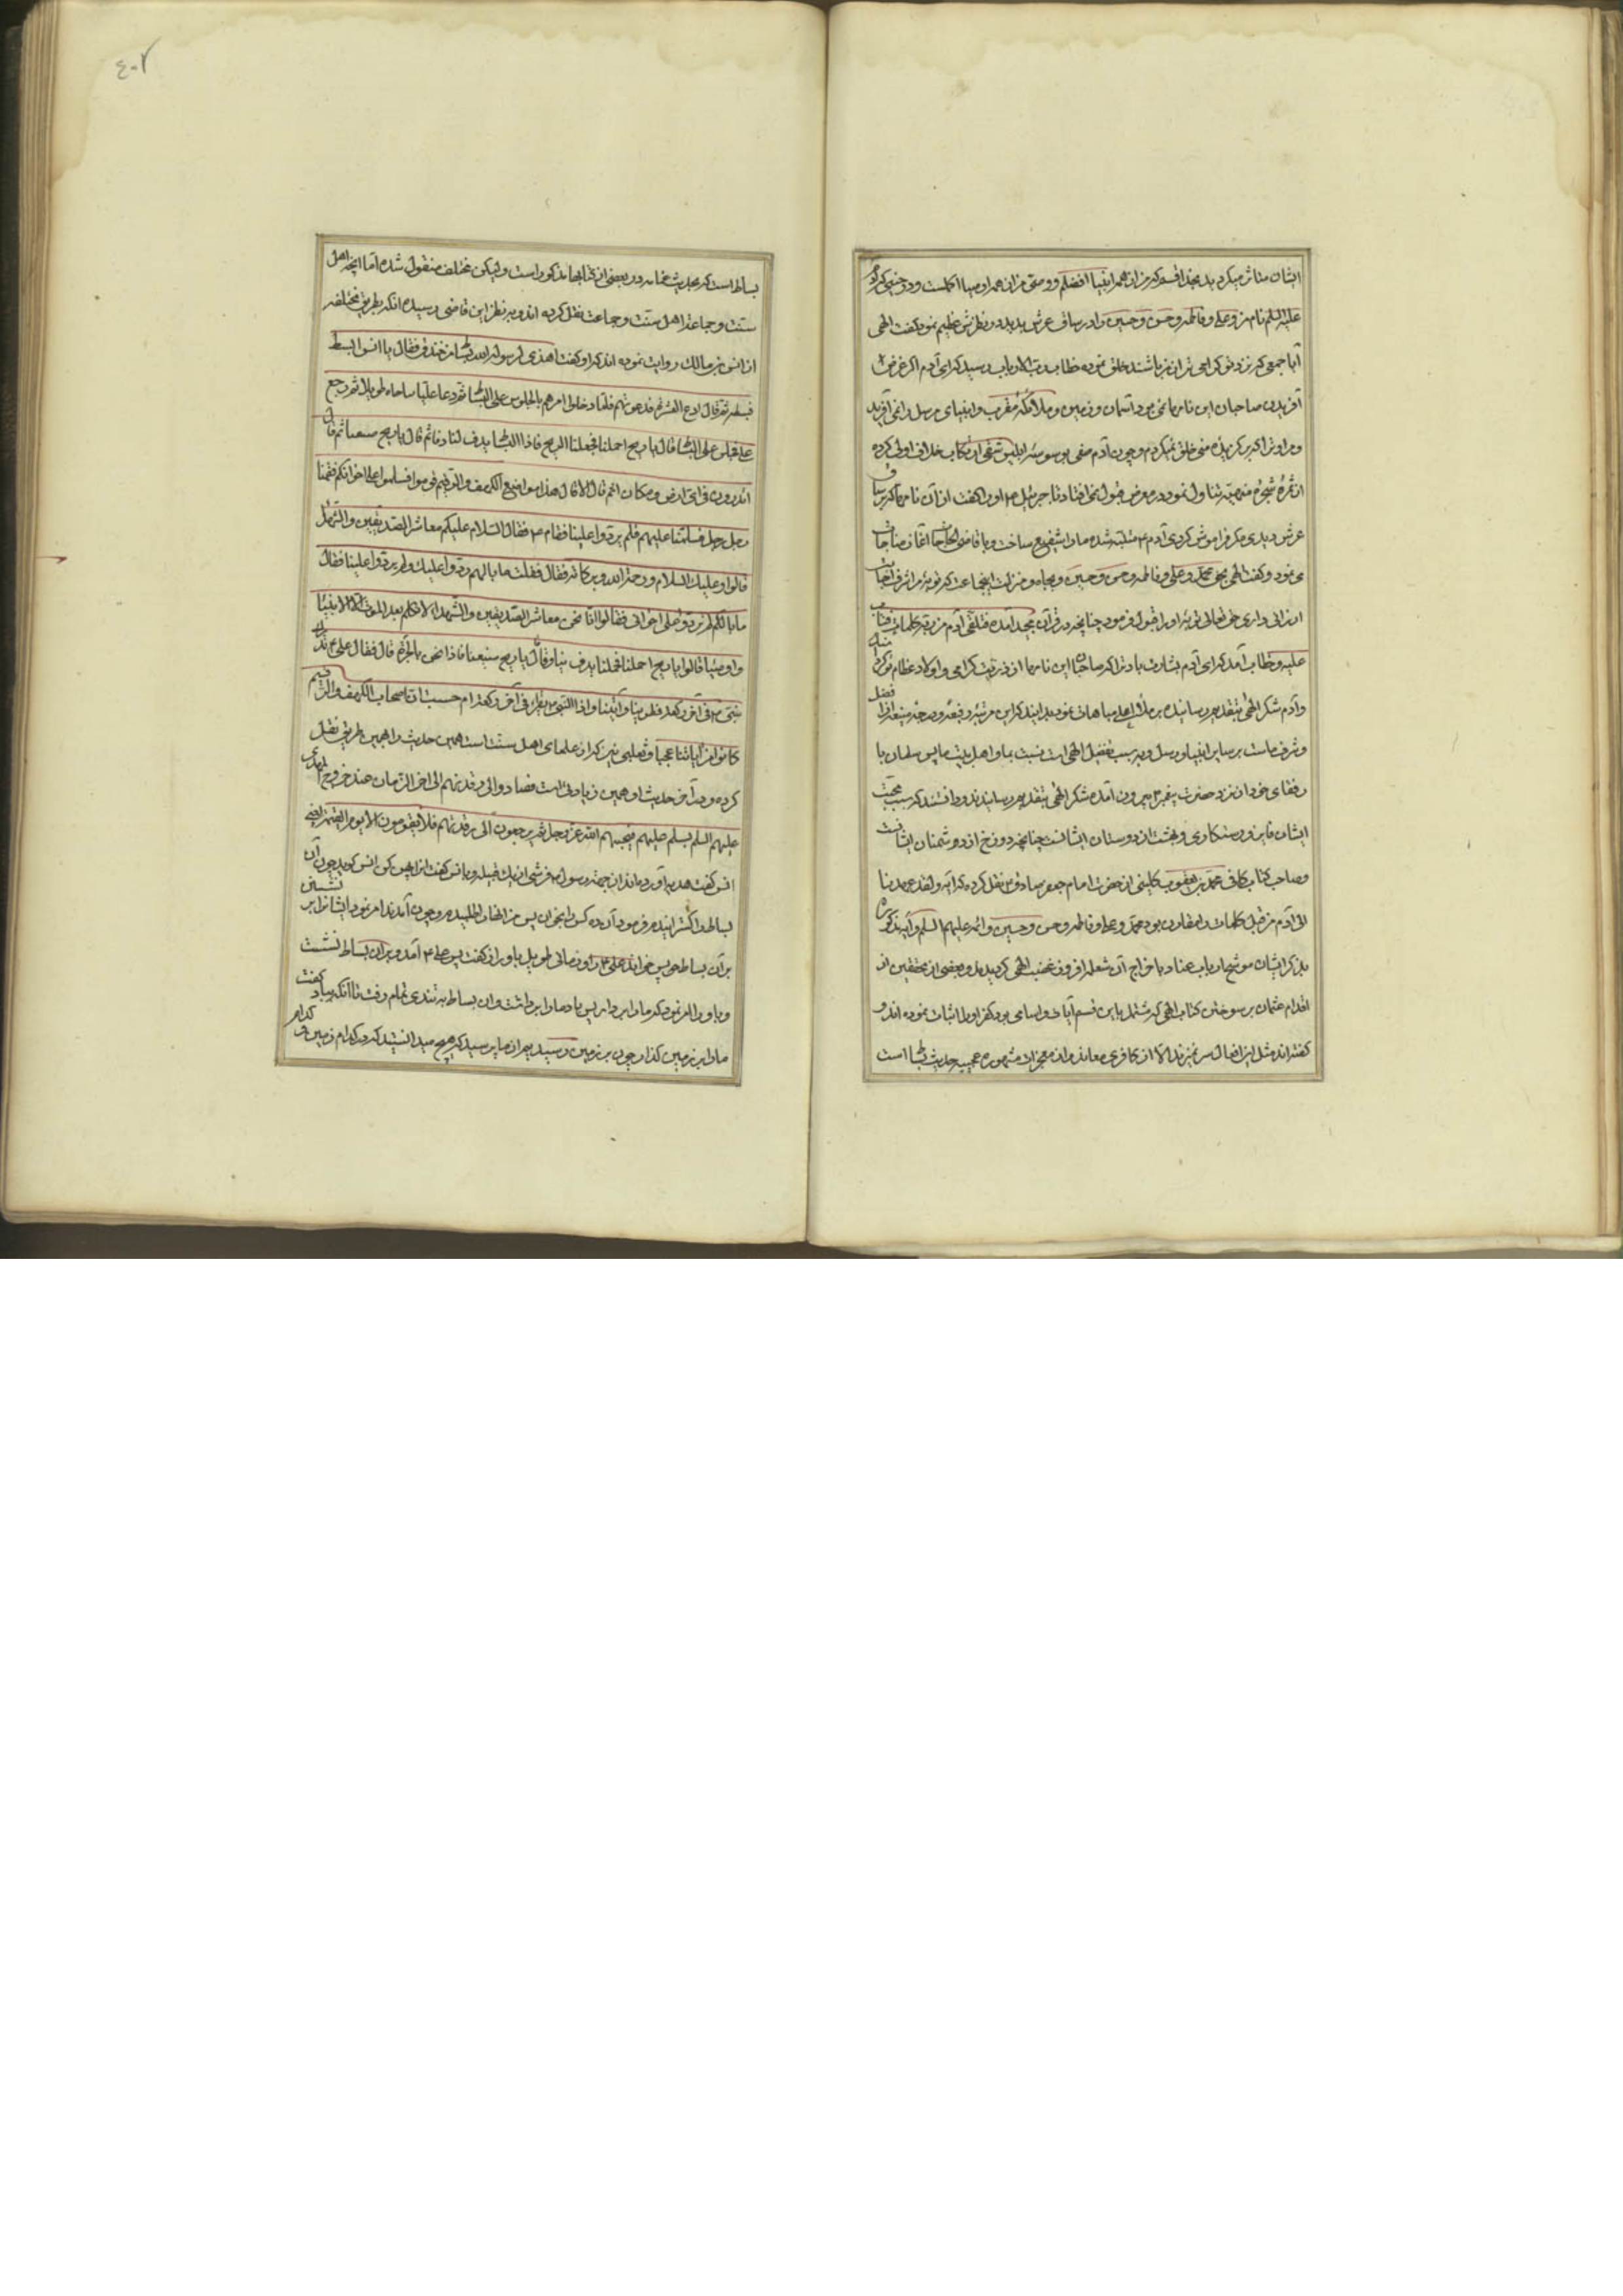 ایشان متاثر میکردید بخدا قسم که من از همه انبیا افضلم و وصی من از همه اوصیا اکملست و در وقتی که آدم
علیه السلم نام من و علی و فاطمه و حسن و حسین را در ساق عرش بدید در نظرش عظیم نمود گفت الهی
آیا جمعی که نزد تو گرامی تر از من باشند خلق نموده خطاب رب الارباب رسید که ای آدم اگر غرض
آفریدن صاحبان این نامها نمی بود آسمان و زمین و ملائکه مقرب و انبیای مرسل را نمی آفریدم
و مر او ترا که برگزیده منی خلق نمیکردم و چون آدم صفی بوسوسه ابلیس شقی ارتکاب خلاف اولی کرده
از ثمره شجره منهیه تناول نمود در معرض قبول نمی افتاد تا جبرئیل ۴ او را گفت از آن نامها که بر ساق
عرش دیدی مگر فراموش کردی آدم ۴ متنبه شده ما را شفیع ساخت و یا قاضی الحاجات آغاز مناجات
می نمود و گفت الهی بحق محمد و علی و فاطمه و حسن و حسین و بجاه و منزلت اینجماعت که توبه مرا شرف اجابت
ارزانی داری حق تعالی توبه او را قبول فرمود چنانچه در قرآن مجید آمده فتلقی آدم من ربه کلمات فتاب
علیه و خطاب آمد که ای آدم بشارت باد ترا که صاحبان این نامها از ذریت گرامی و اولاد عظام تو اند
و آدم شکر الهی بتقدیم رسانیده بر ملائکه مباهات نمود بدانید که این مرتبه رفیعه و درجه منیعه از فضل
و شرف ماست بر سایر انبیا و رسل و بر سبب تفضل الهی است نسبت بما و اهل بیت ما پس سلمان با
رفقای خود از نزد حضرت پیغمبر ۴ بیرون آمده شکر الهی بتقدیم رسانیدند و دانستند که سبب محبت
ایشان فایز و رستگاری و بهشت از دوستان ایشانست چنانچه دوزخ از دشمنان ایشانست
و صاحب کتاب کافی محمد بن یعقوب کلینی از حضرت امام جعفر صادق ع نقل کرده که آیه و لقد عهدنا
الی آدم من قبل کلمات دامقارن بود محمد و علی و فاطمه و حسن و حسین و ائمه علیهم السلم و آیه مذکوره
بذکر ایشان موشح ارباب عناد باخراج آن شعله افروز غضب الهی گردیدند و بعضی از محققین از
اقدام عثمان بر سوختن کتاب الهی که مشتمل باین قسم آیات و اسامی بود کفر او را اثبات نموده اند و
گفته اند مثل این افعال سر نمیزند الا از کافری معاند و از معجزات مشهوره عجیبه حدیث بساط است
بساط است که بحدیث غمامه در بعضی از کتابها مذکور است و لیکن مختلف منقول شده اما آنچه اهل
سنت و جماعة اهل سنت و جماعت نقل کرده اند و بنظر این قاضی رسیده آنکه بطریق مختلفه
از انس بن مالک روایت نموده اند که او گفت اهدی لرسول الله بساط من خندف فقال یا انس ابسط
فبسطته ثم قال ادع العشرة فدعوتهم فلما دخلوا امرهم بالجلوس علی البساط ثم دعا علیا ساجاه طویلا ثم رجع
علی فجلس علی البساط قال یا ریح احملنا فحملتنا الریح فاذا البساط یدف لنا دفا ثم قال یا ریح ضعینا ثم قال
اتدرون فی ای ارض و مکان انتم قال لا قال هذا موضع الکهف و الرقیم قوموا فسلموا علی اخوانکم فقمنا
رجل رجل فسلمنا علیهم فلم یردوا علینا فقام ۴ فقال السلام علیکم معاشر الصدیقین و الشهدا
قالوا و علیک السلام و رحمة الله و برکاته فقال فقلت ما بالهم ردوا علیک و لم یردوا علینا فقال
ما بالکم لم تردوا علی اخوانی فقالوا انا نحن معاشر الصدیقین و الشهداء لا نکلم بعد الموت الا الانبیا
و اوصیا قالوا یا ریح احملنا فحملتنا یدف بنا دفا ثم قال یا ریح ضعینا فاذا نحن بالحرة قال فقال علی ۴ ندرک
النبی ۴ فی آخر رکعة فطوینا و اتینا و اذا النبی ۴ یقرا فی آخر رکعة ام حسبت ان اصحاب الکهف و الرقیم
کانوا من آیاتنا عجبا و ثعلبی نیز که از علمای اهل سنت است همین حدیث را بهمین طریق نقل
کرده و در آخر حدیث او همین زیادتی است فصاروا الی رقدتهم الی اخر الزمان عند خروج المهدی
علیهم السلم یسلم علیهم فیحییهم الله عز و جل ثم یرجعون الی رقدتهم فلا یقومون الا یوم القیمه یعنی
انس گفت هدیه آوردند از جهة رسول ۴ فرشی از یک قبیله و یا نس گفت انرا پهن کن انس گوید چون آن
بساط را گسترانیدم فرمود آن ده کس را بخوان پس من انها را طلبیدم و چون آمدند امر نمود ایشانرا بر نشستن
بر آن بساط پس خواند علی ۴ را و زمانی طویل با او راز گفت پس علی ۴ آمد و بر آن بساط نشست
و باد را امر نمود که ما را بردار پس باد ما را برداشت و آن بساط به تندی تمام رفت تا آنکه بباد گفت
ما را بر زمین گذار چون بر زمین رسیدیم از ما پرسید که هیچ میدانستید که در کدام زمین و کدام
۴۰۲